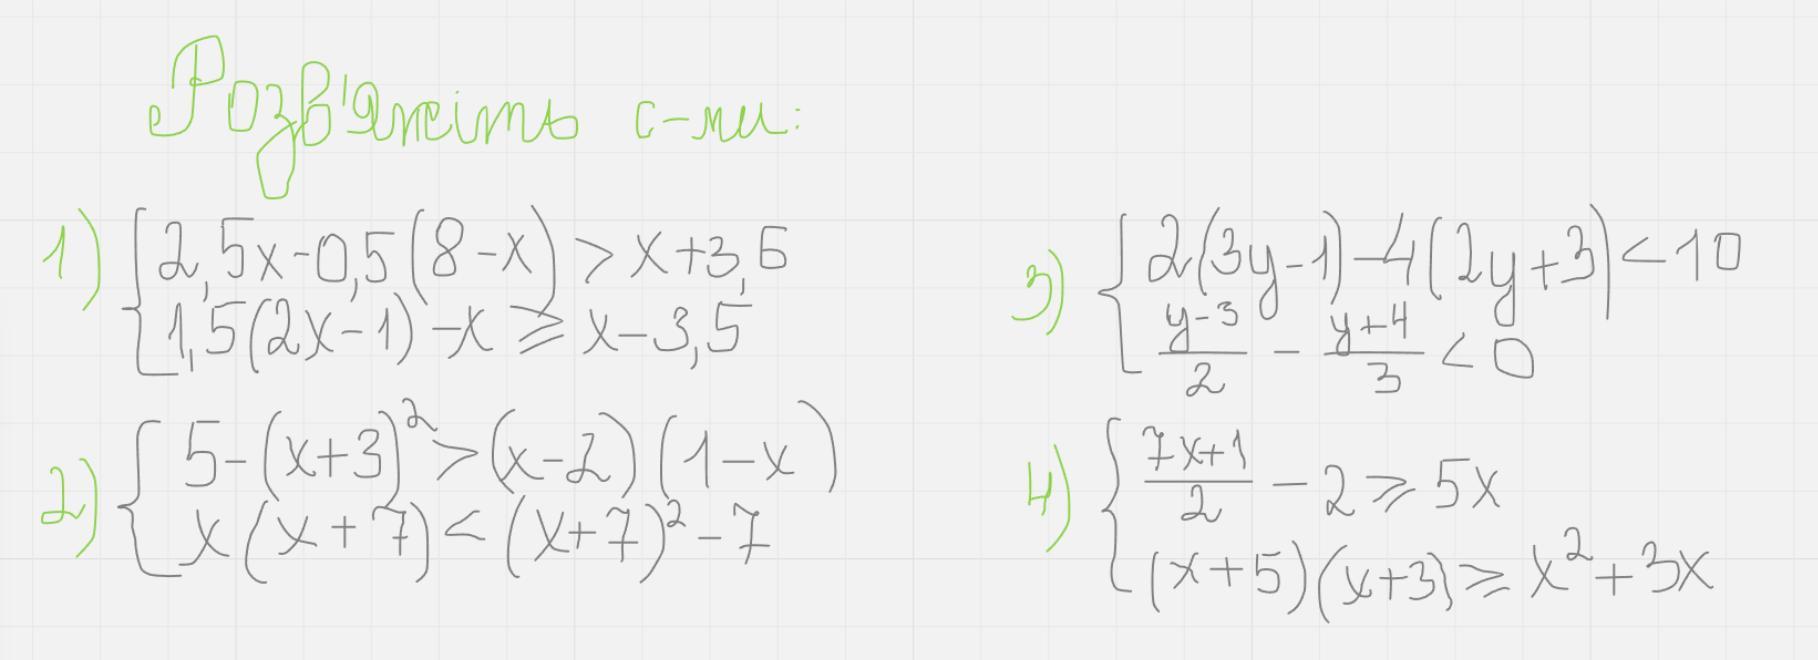 Розв'яжіть с-ми:
1) { 2,5x-0,5(8-x) > x+3,6
1,5(2x-1)-x ≥ x-3,5
2) { 5-(x+3)² > (x-2)(1-x)
x(x+7) < (x+7)²-7
3) { 2(3y-1)-4(2y+3) < 10
(y-3)/2 - (y+4)/3 < 0
4) { (7x+1)/2 - 2 ≥ 5x
(x+5)(x+3) ≥ x²+3x